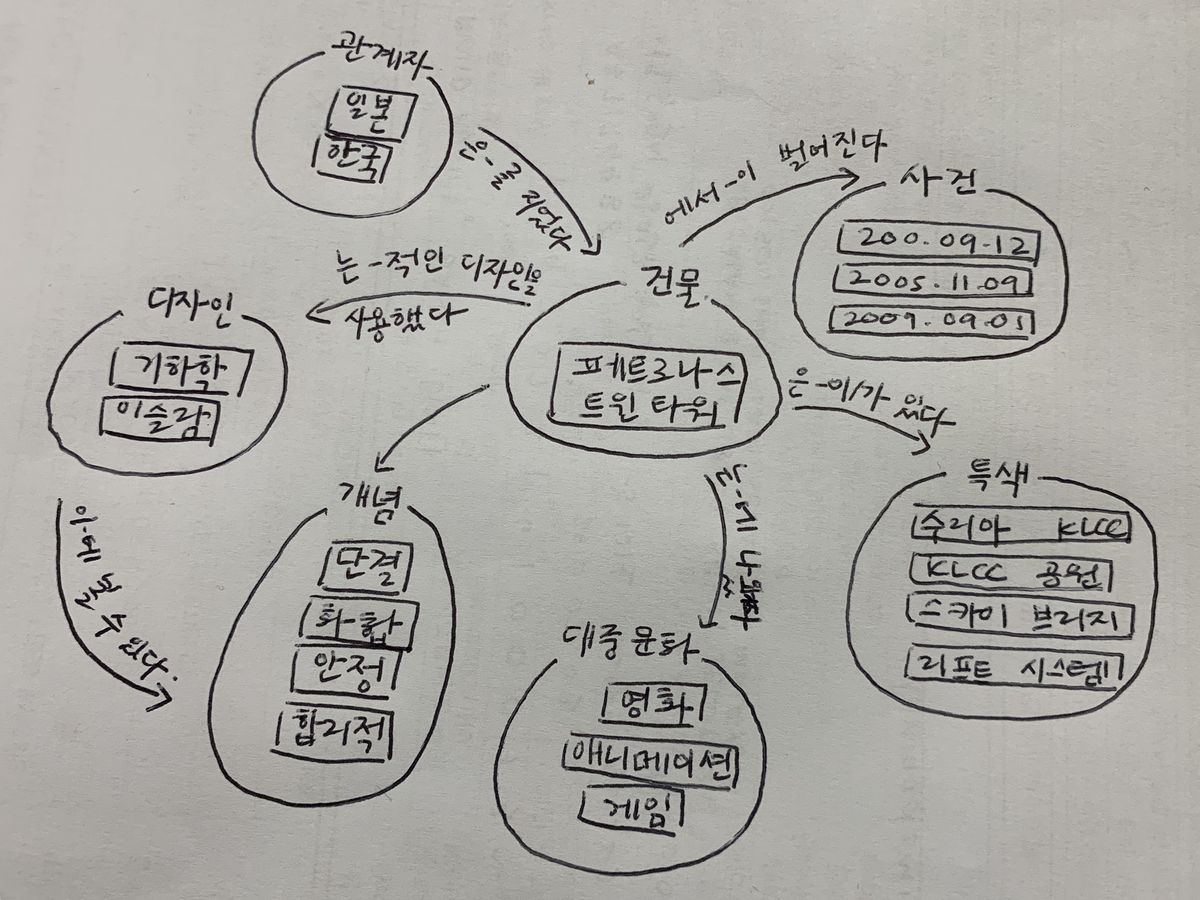 관계자
일본
한국
은-를 지었다
에서-이 벌어진다
사건
200.09.12
2005.11.09
2009.09.01
는-적인 디자인을
사용했다
건물
페트로나스
트윈 타워
디자인
기하학
이슬람
은-이/가 있다
특색
수리아 KLCC
KLCC 공원
스카이 브리지
리프트 시스템
개념
단결
화합
안정
합리적
이-에 볼 수 있다.
대중문화
영화
애니메이션
게임